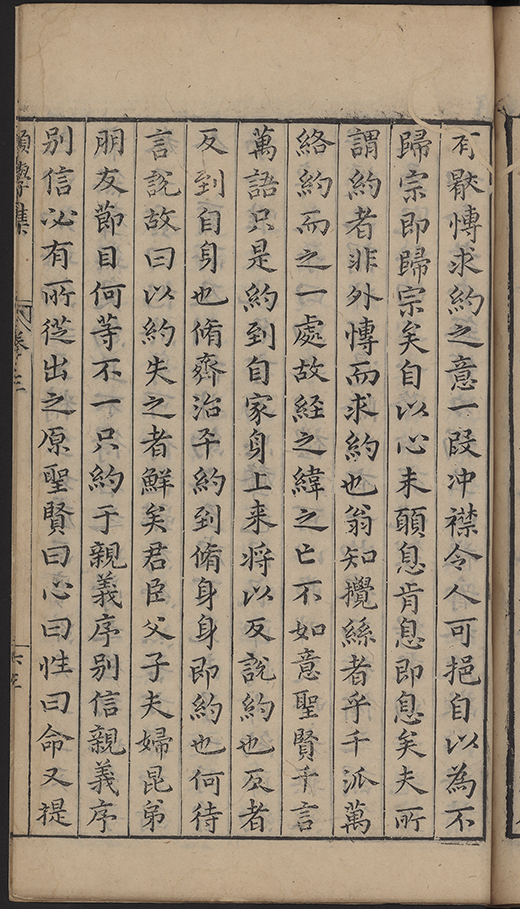 有厭慱求約之意一段冲襟令人可挹自以為不
歸宗即歸宗矣自以心未頤息肯息即息矣夫所
謂約者非外慱而求約也翁知攪絲者乎千派萬
絡約而之一處故経之緯之亡不如意聖賢千言
萬語只是約到自家身上来将以反說約也反者
反到自身也脩齊治平約到脩身身即約也何待
言說故曰以約失之者鮮矣君臣父子夫婦昆弟
朋友節目何等不一只約于親義序別信親義序
別信必有所從出之原聖賢曰心曰性曰命又禔
願學集
卷之三